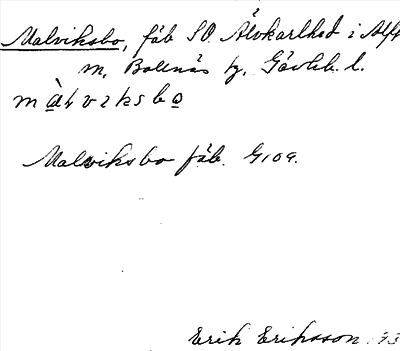 Malviksbo, fäb SO Älvkarlhed i Alft
m, Bollnäs tg, Gävleb. l.
màlviksbo
Malviksbo fäb. G109.
Erik Eriksson